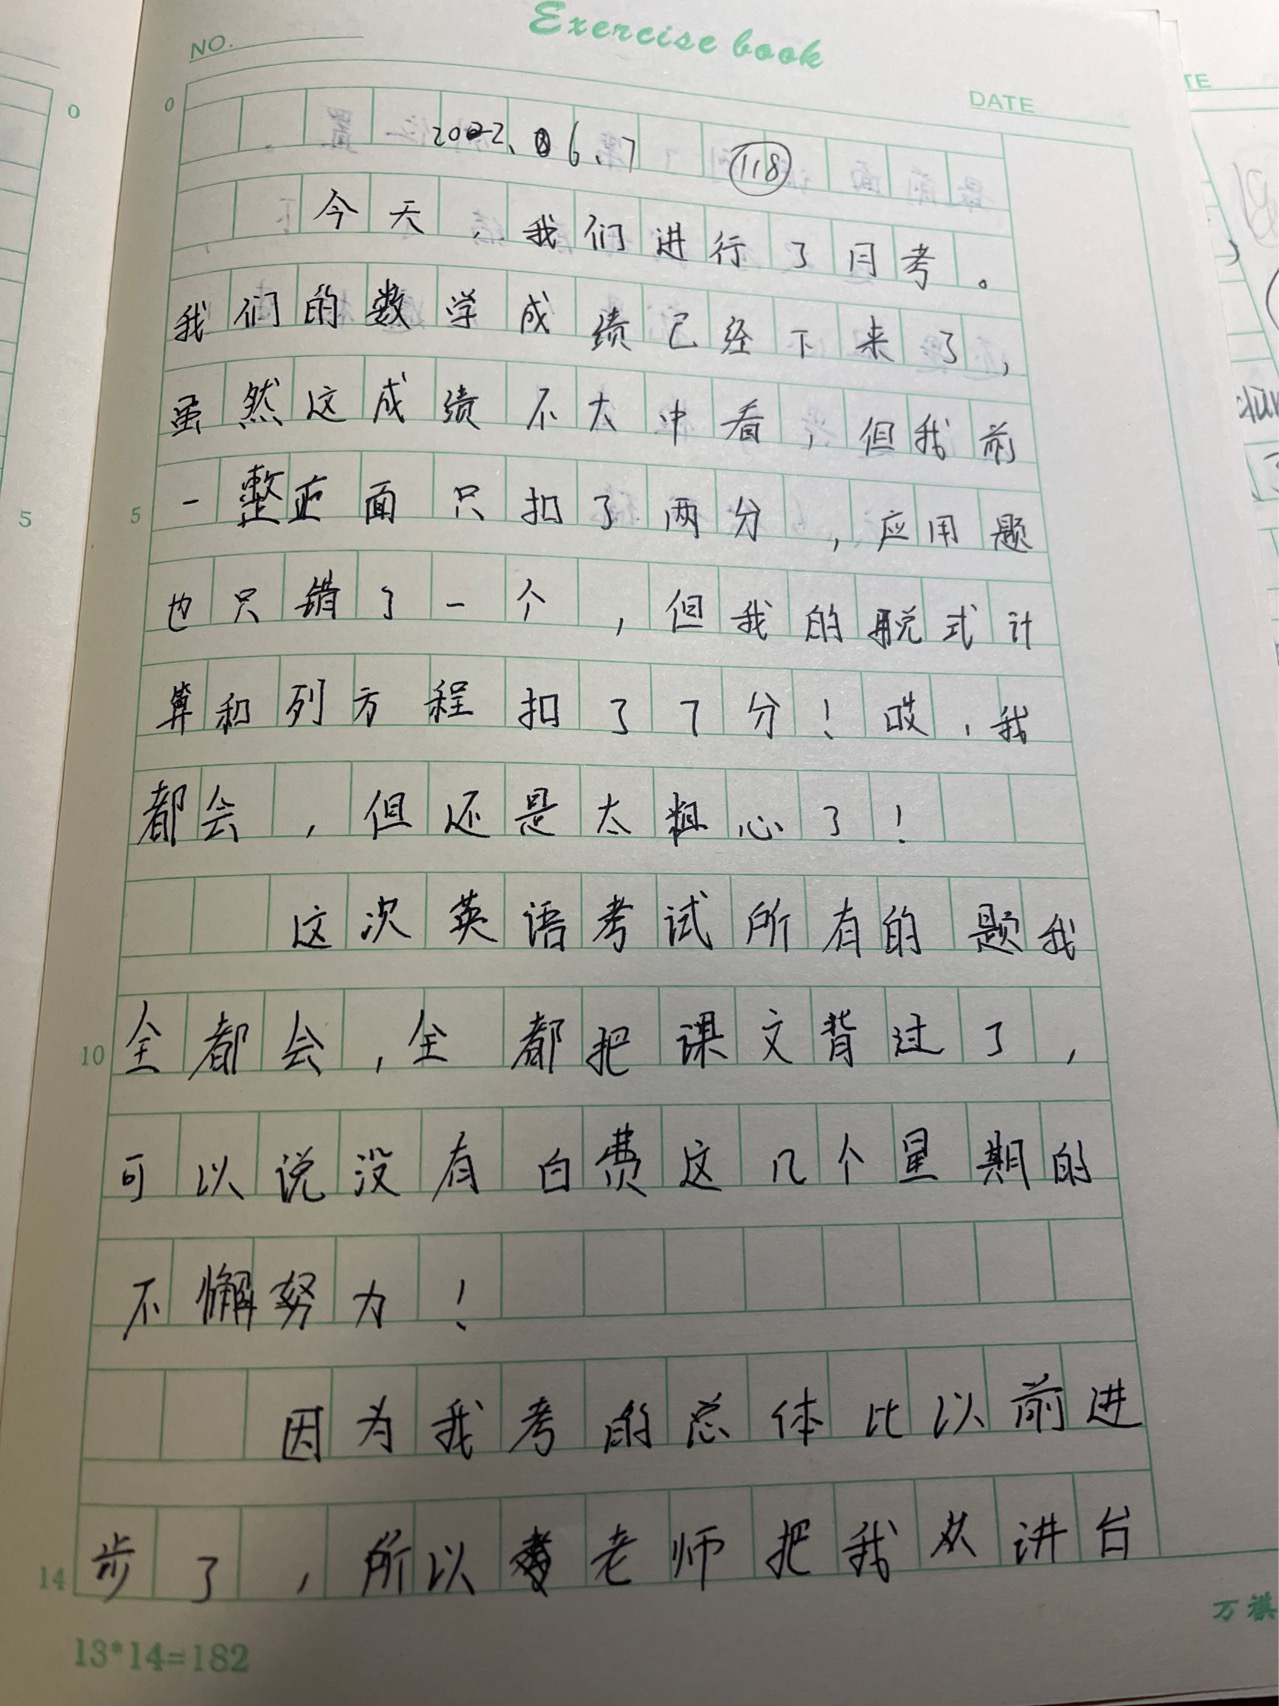 Exercise book
NO.
DATE
2022.06.7 118
今天,我们进行了月考。
我们的数学成绩已经下来了,
虽然这成绩不太中看,但我前
一整面只扣了两分,应用题
也只错了一个,但我的脱式计
算和列方程扣了7分!哎,我
都会,但还是太粗心了!
这次英语考试所有的题我
全都会,全都把课文背过了,
可以说没有白费这几个星期的
不懈努力!
因为我考的总体比以前进
步了,所以老师把我从讲台
0
5
10
14
13*14=182
0
5
万